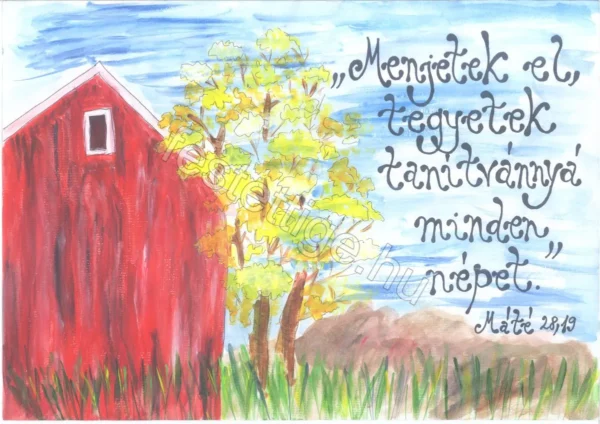 „Menjetek el,
tegyetek
tanítvánnyá
minden
népet.”
Máté 28,19
festettige.hu